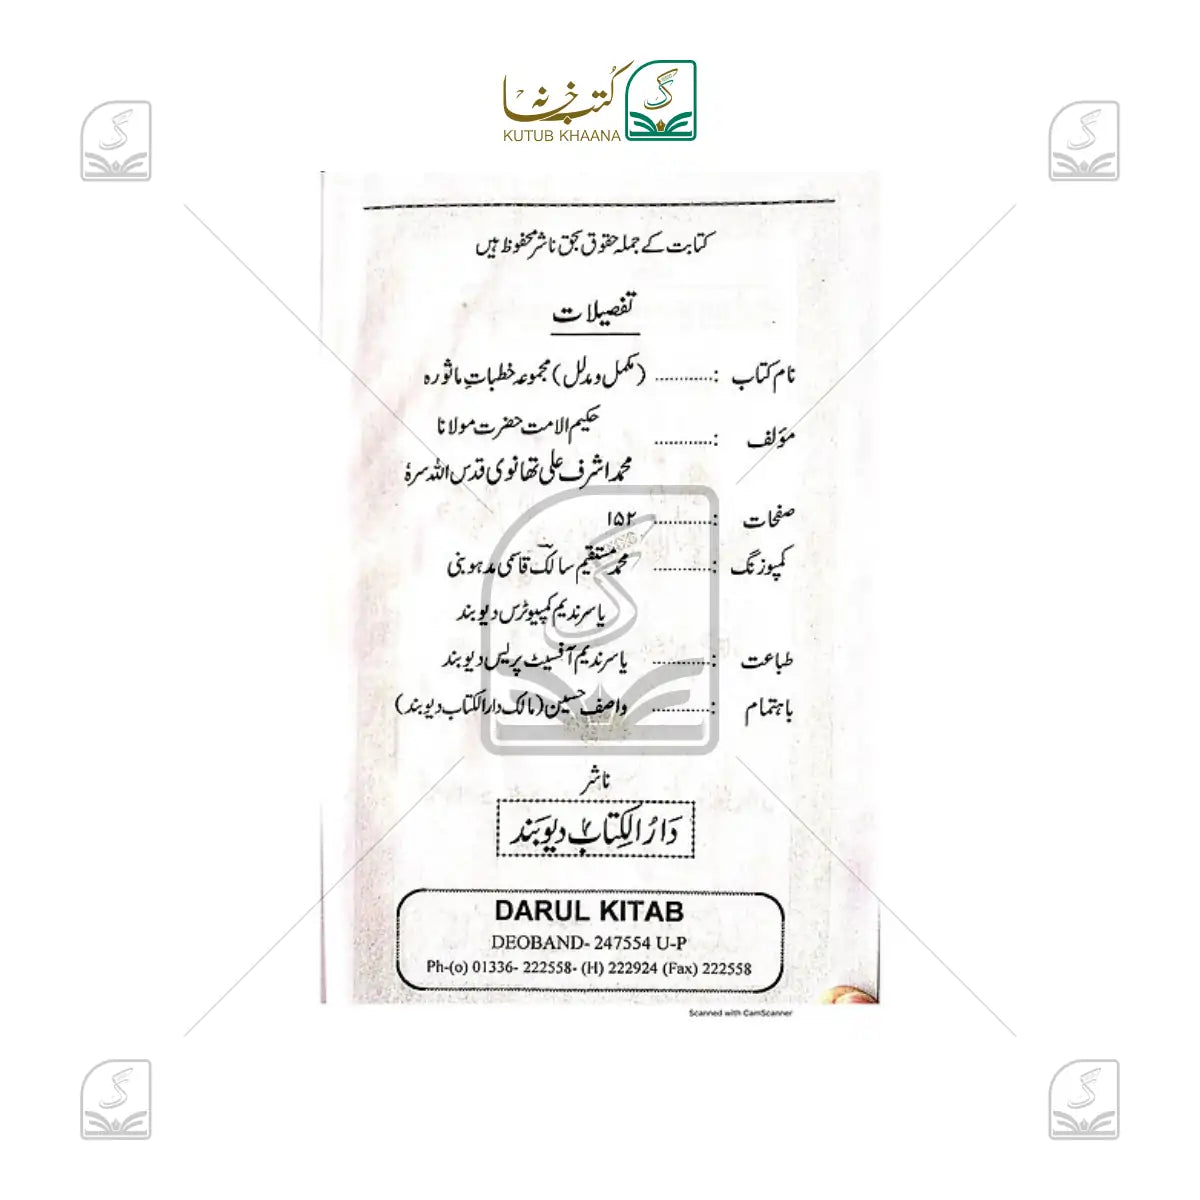 کتب خانہ
KUTUB KHAANA
کتابت کے جملہ حقوق بحق ناشر محفوظ ہیں
تفصیلات
نام کتاب :............ (مکمل و مدلل) مجموعہ خطباتِ ماثورہ
مؤلف :............ حکیم الامت حضرت مولانا
محمد اشرف علی تھانوی قدس اللہ سرہٗ
صفحات :............ ۱۵۲
کمپوزنگ :............ محمد مستقیم سالک قاسمی مدہوبنی
یاسر ندیم کمپیوٹرس دیوبند
طباعت :............ یاسر ندیم آفسیٹ پریس دیوبند
باہتمام :............ واصف حسین (مالک دارالکتاب دیوبند)
ناشر
دَارُالکِتاب دیوبَند
DARUL KITAB
DEOBAND- 247554 U-P
Ph-(o) 01336- 222558- (H) 222924 (Fax) 222558
Scanned with CamScanner